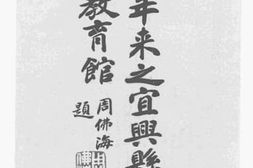 年来之宜興縣
教育館
周佛海題